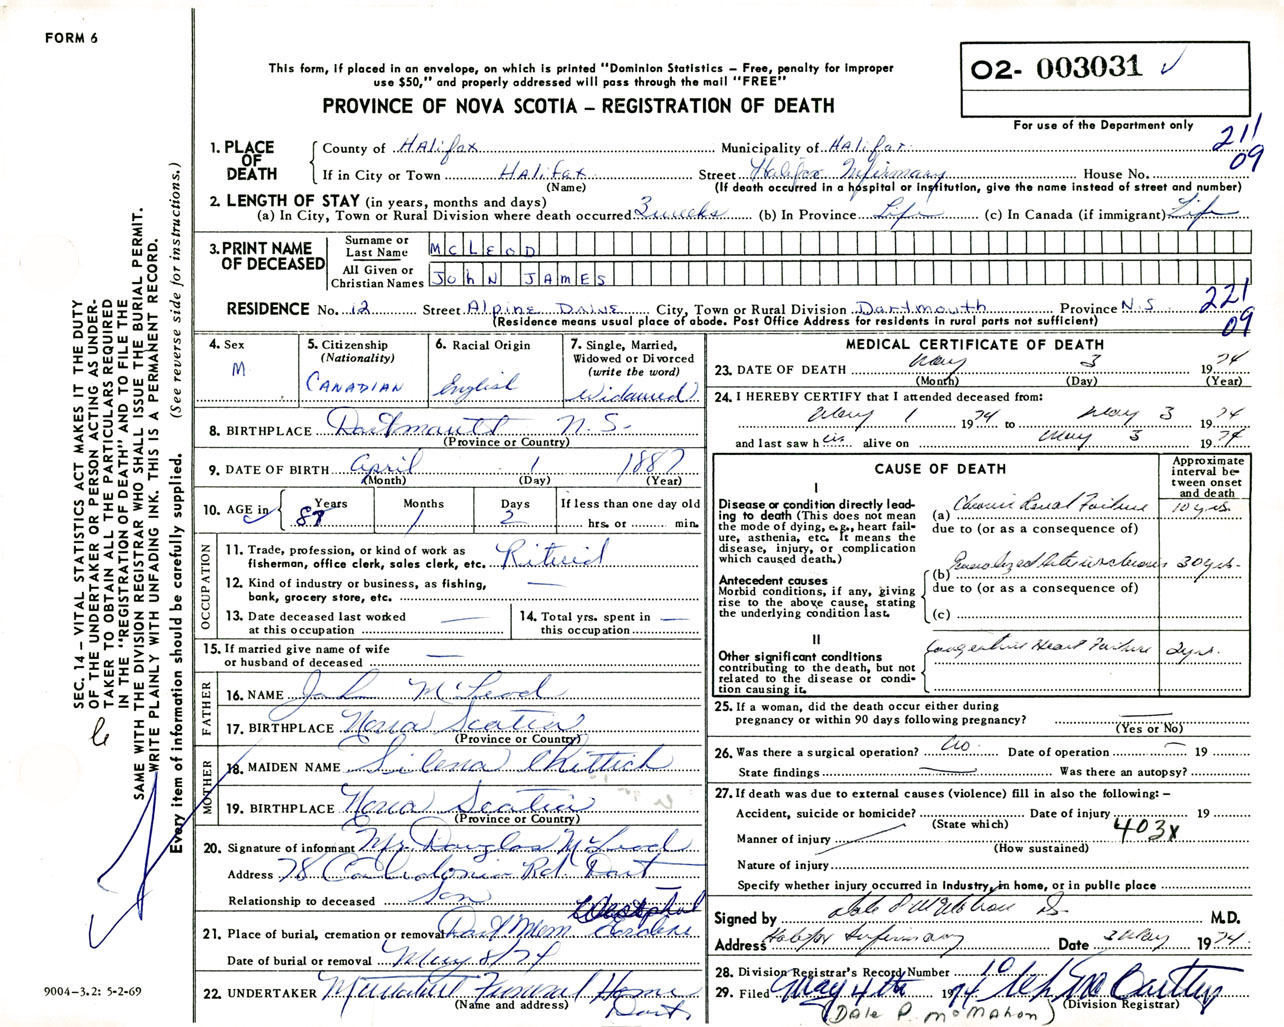 FORM 6
This form, if placed in an envelope, on which is printed "Dominion Statistics – Free, penalty for improper
use $50," and properly addressed will pass through the mail "FREE"
PROVINCE OF NOVA SCOTIA – REGISTRATION OF DEATH
02- 003031
For use of the Department only
211
09
1. PLACE OF DEATH
County of Halifax Municipality of Halifax
If in City or Town Halifax Street Halifax Infirmary House No.
(Name) (If death occurred in a hospital or institution, give the name instead of street and number)
2. LENGTH OF STAY (in years, months and days)
(a) In City, Town or Rural Division where death occurred 3 weeks (b) In Province Life (c) In Canada (if immigrant) Life
3. PRINT NAME OF DECEASED
Surname or Last Name McLEOD
All Given or Christian Names JohN JAMES
RESIDENCE No. 12 Street Alpine Drive City, Town or Rural Division Dartmouth Province N.S
(Residence means usual place of abode. Post Office Address for residents in rural parts not sufficient)
221
09
4. Sex
M
5. Citizenship
(Nationality)
CANADIAN
6. Racial Origin
English
7. Single, Married,
Widowed or Divorced
(write the word)
Widowed
8. BIRTHPLACE Dartmouth N.S.
(Province or Country)
9. DATE OF BIRTH April 1 1887
(Month) (Day) (Year)
10. AGE in
Years Months Days If less than one day old
87 1 2 hrs. or min.
OCCUPATION
11. Trade, profession, or kind of work as
fisherman, office clerk, sales clerk, etc. Retired
12. Kind of industry or business, as fishing,
bank, grocery store, etc. —
13. Date deceased last worked
at this occupation —
14. Total yrs. spent in
this occupation —
15. If married give name of wife
or husband of deceased —
FATHER
16. NAME John McLeod
17. BIRTHPLACE Nova Scotia
(Province or Country)
MOTHER
18. MAIDEN NAME Silena Chittick
19. BIRTHPLACE Nova Scotia
(Province or Country)
20. Signature of informant Mr. Douglas McLeod
Address 78 Rd. Dart
Relationship to deceased Son
21. Place of burial, cremation or removal Dart Mem Gardens
Date of burial or removal May 8/74
22. UNDERTAKER Funeral Home
(Name and address) Dart.
MEDICAL CERTIFICATE OF DEATH
23. DATE OF DEATH May 3 19 74
(Month) (Day) (Year)
24. I HEREBY CERTIFY that I attended deceased from:
May 1 19 74 to May 3 19 74
and last saw h is alive on May 3 19 74
CAUSE OF DEATH
Approximate
interval be-
tween onset
and death
I
Disease or condition directly lead-
ing to death (This does not mean
the mode of dying, e.g., heart fail-
ure, asthenia, etc. It means the
disease, injury, or complication
which caused death.)
(a) Chronic Renal Failure 10 yrs.
due to (or as a consequence of)
Antecedent causes
Morbid conditions, if any, giving
rise to the above cause, stating
the underlying condition last.
(b) Generalized Atherosclerosis 30 yrs.
due to (or as a consequence of)
(c)
II
Other significant conditions
contributing to the death, but not
related to the disease or condi-
tion causing it.
Congestive Heart Failure 2 yrs.
25. If a woman, did the death occur either during
pregnancy or within 90 days following pregnancy? —
(Yes or No)
26. Was there a surgical operation? No. Date of operation — 19
State findings — Was there an autopsy?
27. If death was due to external causes (violence) fill in also the following: –
Accident, suicide or homicide? Date of injury 19
(State which)
403x
Manner of injury
(How sustained)
Nature of injury
Specify whether injury occurred in Industry, in home, or in public place
Signed by M.D.
Address Halifax Infirmary Date 3 May 19 74
28. Division Registrar's Record Number 10
29. Filed May 4th 1974
(Division Registrar)
(DALE P. McMAHON)
SEC. 14 – VITAL STATISTICS ACT MAKES IT THE DUTY
OF THE UNDERTAKER OR PERSON ACTING AS UNDER-
TAKER TO OBTAIN ALL THE PARTICULARS REQUIRED
IN THE "REGISTRATION OF DEATH" AND TO FILE THE
SAME WITH THE DIVISION REGISTRAR WHO SHALL ISSUE THE BURIAL PERMIT.
WRITE PLAINLY WITH UNFADING INK. THIS IS A PERMANENT RECORD.
Every item of information should be carefully supplied. (See reverse side for instructions.)
9004-3.2: 5-2-69